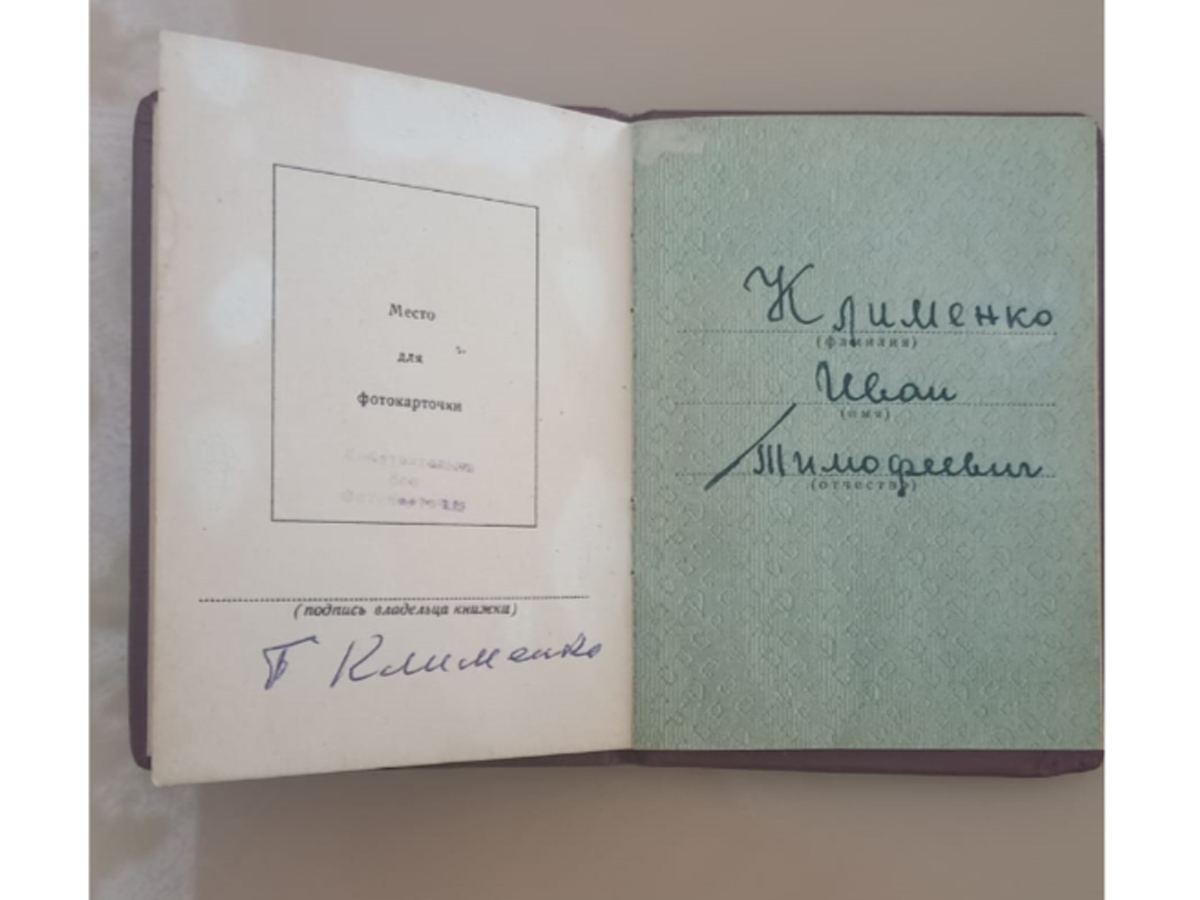 Место
для
фотокарточки
Действительна
без
фотокарточки
(подпись владельца книжки)
Клименко
Клименко
(фамилия)
Иван
(имя)
Тимофеевич
(отчество)